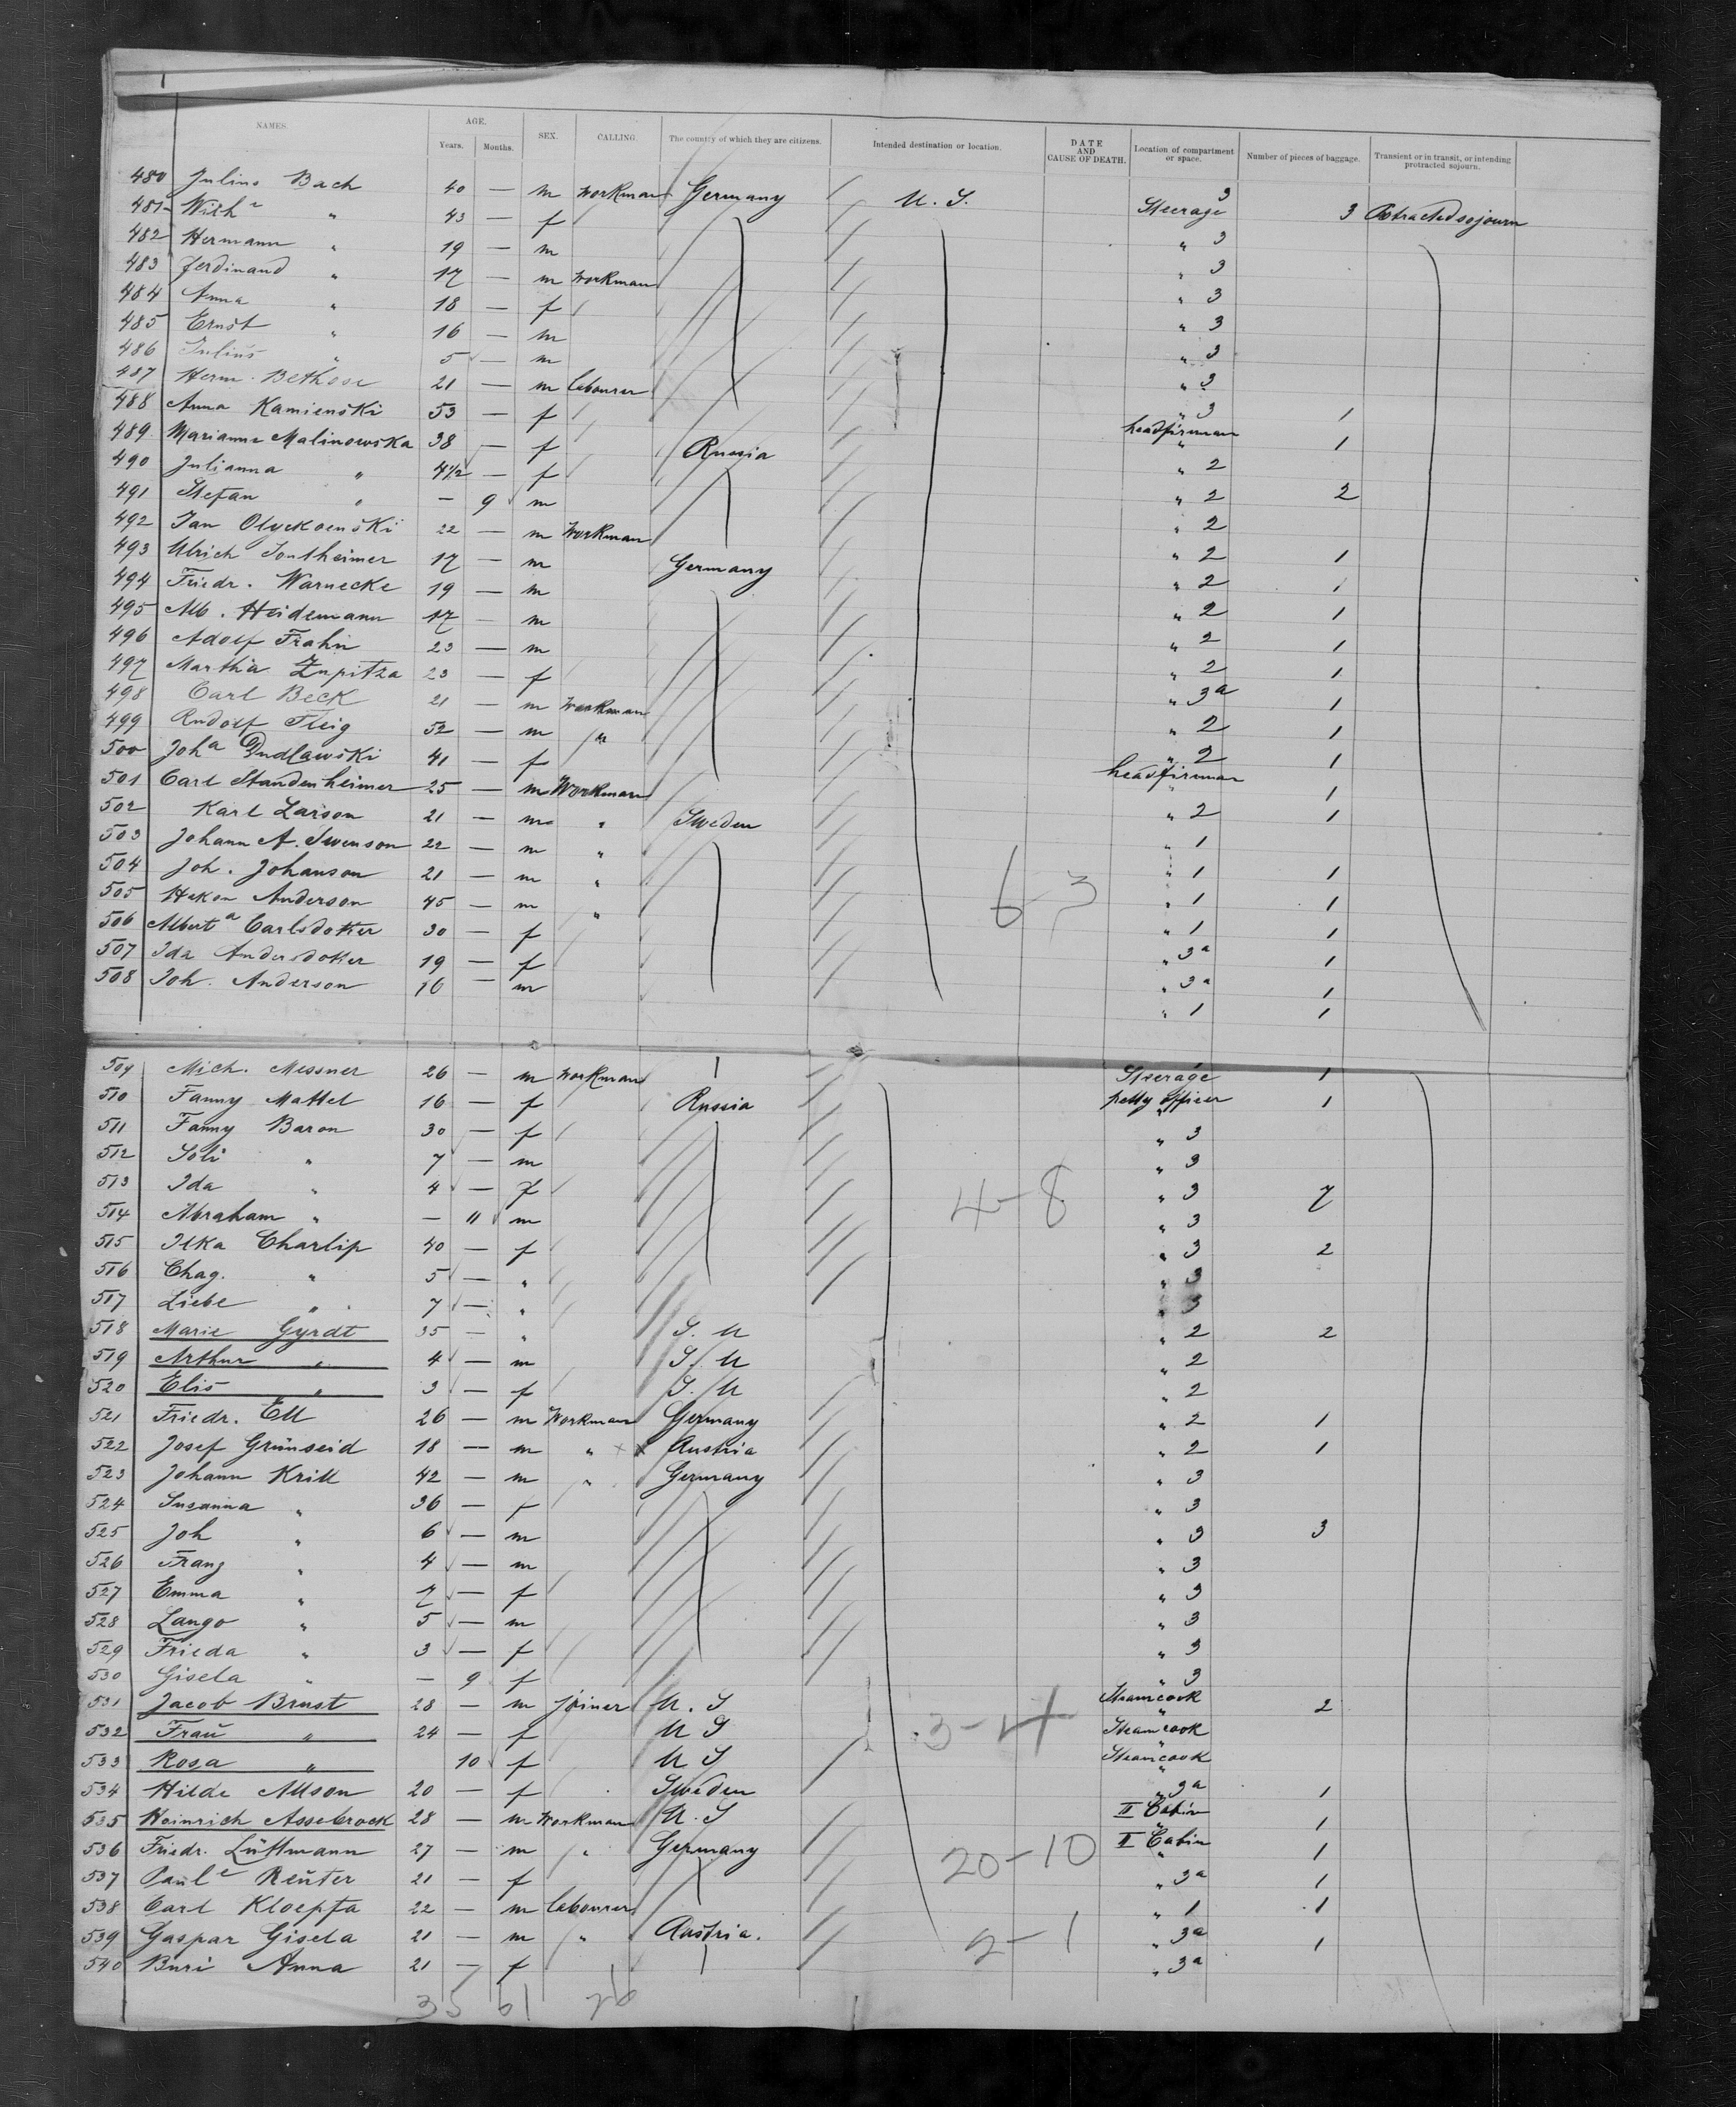 NAMES. AGE. Years. Months. SEX. CALLING. The country of which they are citizens. Intended destination or location. DATE AND CAUSE OF DEATH. Location of compartment or space. Number of pieces of baggage. Transient or in transit, or intending protracted sojourn.
480 Julius Bach 40 — m workman Germany U. S. Steerage 3 3 Protracted sojourn
481 Wilhe " 43 — f " 3
482 Hermann " 19 — m " 3
483 Ferdinand " 17 — m workman " 3
484 Anna " 18 — f " 3
485 Ernst " 16 — m " 3
486 Julius " 5 — m " 3
487 Herm. Bethose 21 — m labourer " 3 1
488 Anna Kamienski 53 — f headfireman " 1
489 Marianne Malinowska 38 — f Russia " 2
490 Julianna " 4 1/2 — f " 2 2
491 Stefan " — 9 m " 2
492 Jan 22 — m workman " 2 1
493 Ulrich Sontheimer 17 — m Germany " 2 1
494 Friedr. Warnecke 19 — m " 2 1
495 Alb. Heidemann 17 — m " 2 1
496 Adolf Frahm 23 — m " 2 1
497 Martha Zupitza 23 — f " 3a 1
498 Carl Beck 21 — m workman " 2 1
499 Rudolf Fleig 52 — m " " 2 1
500 Joha Dudlawski 41 — f headfireman " 1
501 Carl Standenheimer 25 — m Workman " 2 1
502 Karl Larson 21 — m " Sweden " 1
503 Johann A. Swenson 22 — m " " 1 1
504 Joh. Johanson 21 — m " " 1 1
505 Hakon Anderson 45 — m " " 1 1
506 Alberta Carlsdotter 30 — f " 3a 1
507 Ida Andersdotter 19 — f " 3a 1
508 Joh. Anderson 16 — m " 1 1
6-3
509 Mich. Messner 26 — m workman Steerage 1
510 Fanny Mattel 16 — f Russia petty officer " 1
511 Fanny Baron 30 — f " 3
512 " 7 — m " 3
513 Ida " 4 — f " 3 7
4-8
514 Abraham " — 11 m " 3
515 Ilka Charlip 40 — f " 3 2
516 Chag. " 5 — " " 3
517 Liebe " 7 — " " 3
518 Marie Gyrdt 35 — " S. U " 2 2
519 Arthur " 4 — m S. U " 2
520 Elis " 3 — f S. U " 2
521 Friedr. Ell 26 — m Workman Germany " 2 1
522 Josef Grünseid 18 — m " x x Austria " 2 1
523 Johann Krill 42 — m " Germany " 3
524 Susanna " 36 — f " 3
525 Joh " 6 — m " 3 3
526 Franz " 4 — m " 3
527 Emma " 7 — f " 3
528 Lango " 5 — m " 3
529 Frieda " 3 — f " 3
530 Gisela " — 9 f " 3
531 Jacob Brust 28 — m joiner U. S Steamcook " 2
3-4
532 Frau " 24 — f U S Steamcook "
533 Rosa " 10 f U S Steamcook "
534 Hilde Allson 20 — f Sweden " 3a 1
535 Heinrich Assebrock 28 — m Workman U. S II Cabin " 1
536 Friedr. Lüttmann 27 — m " Germany II Cabin " 1
20-10
537 Paule Reuter 21 — f " 3a 1
538 Carl Kloepfa 22 — m labourer " 1 1
539 Gaspar Gisela 21 — m " Austria. " 3a 1
2-1
540 Buri Anna 21 — f " 3a
35 61